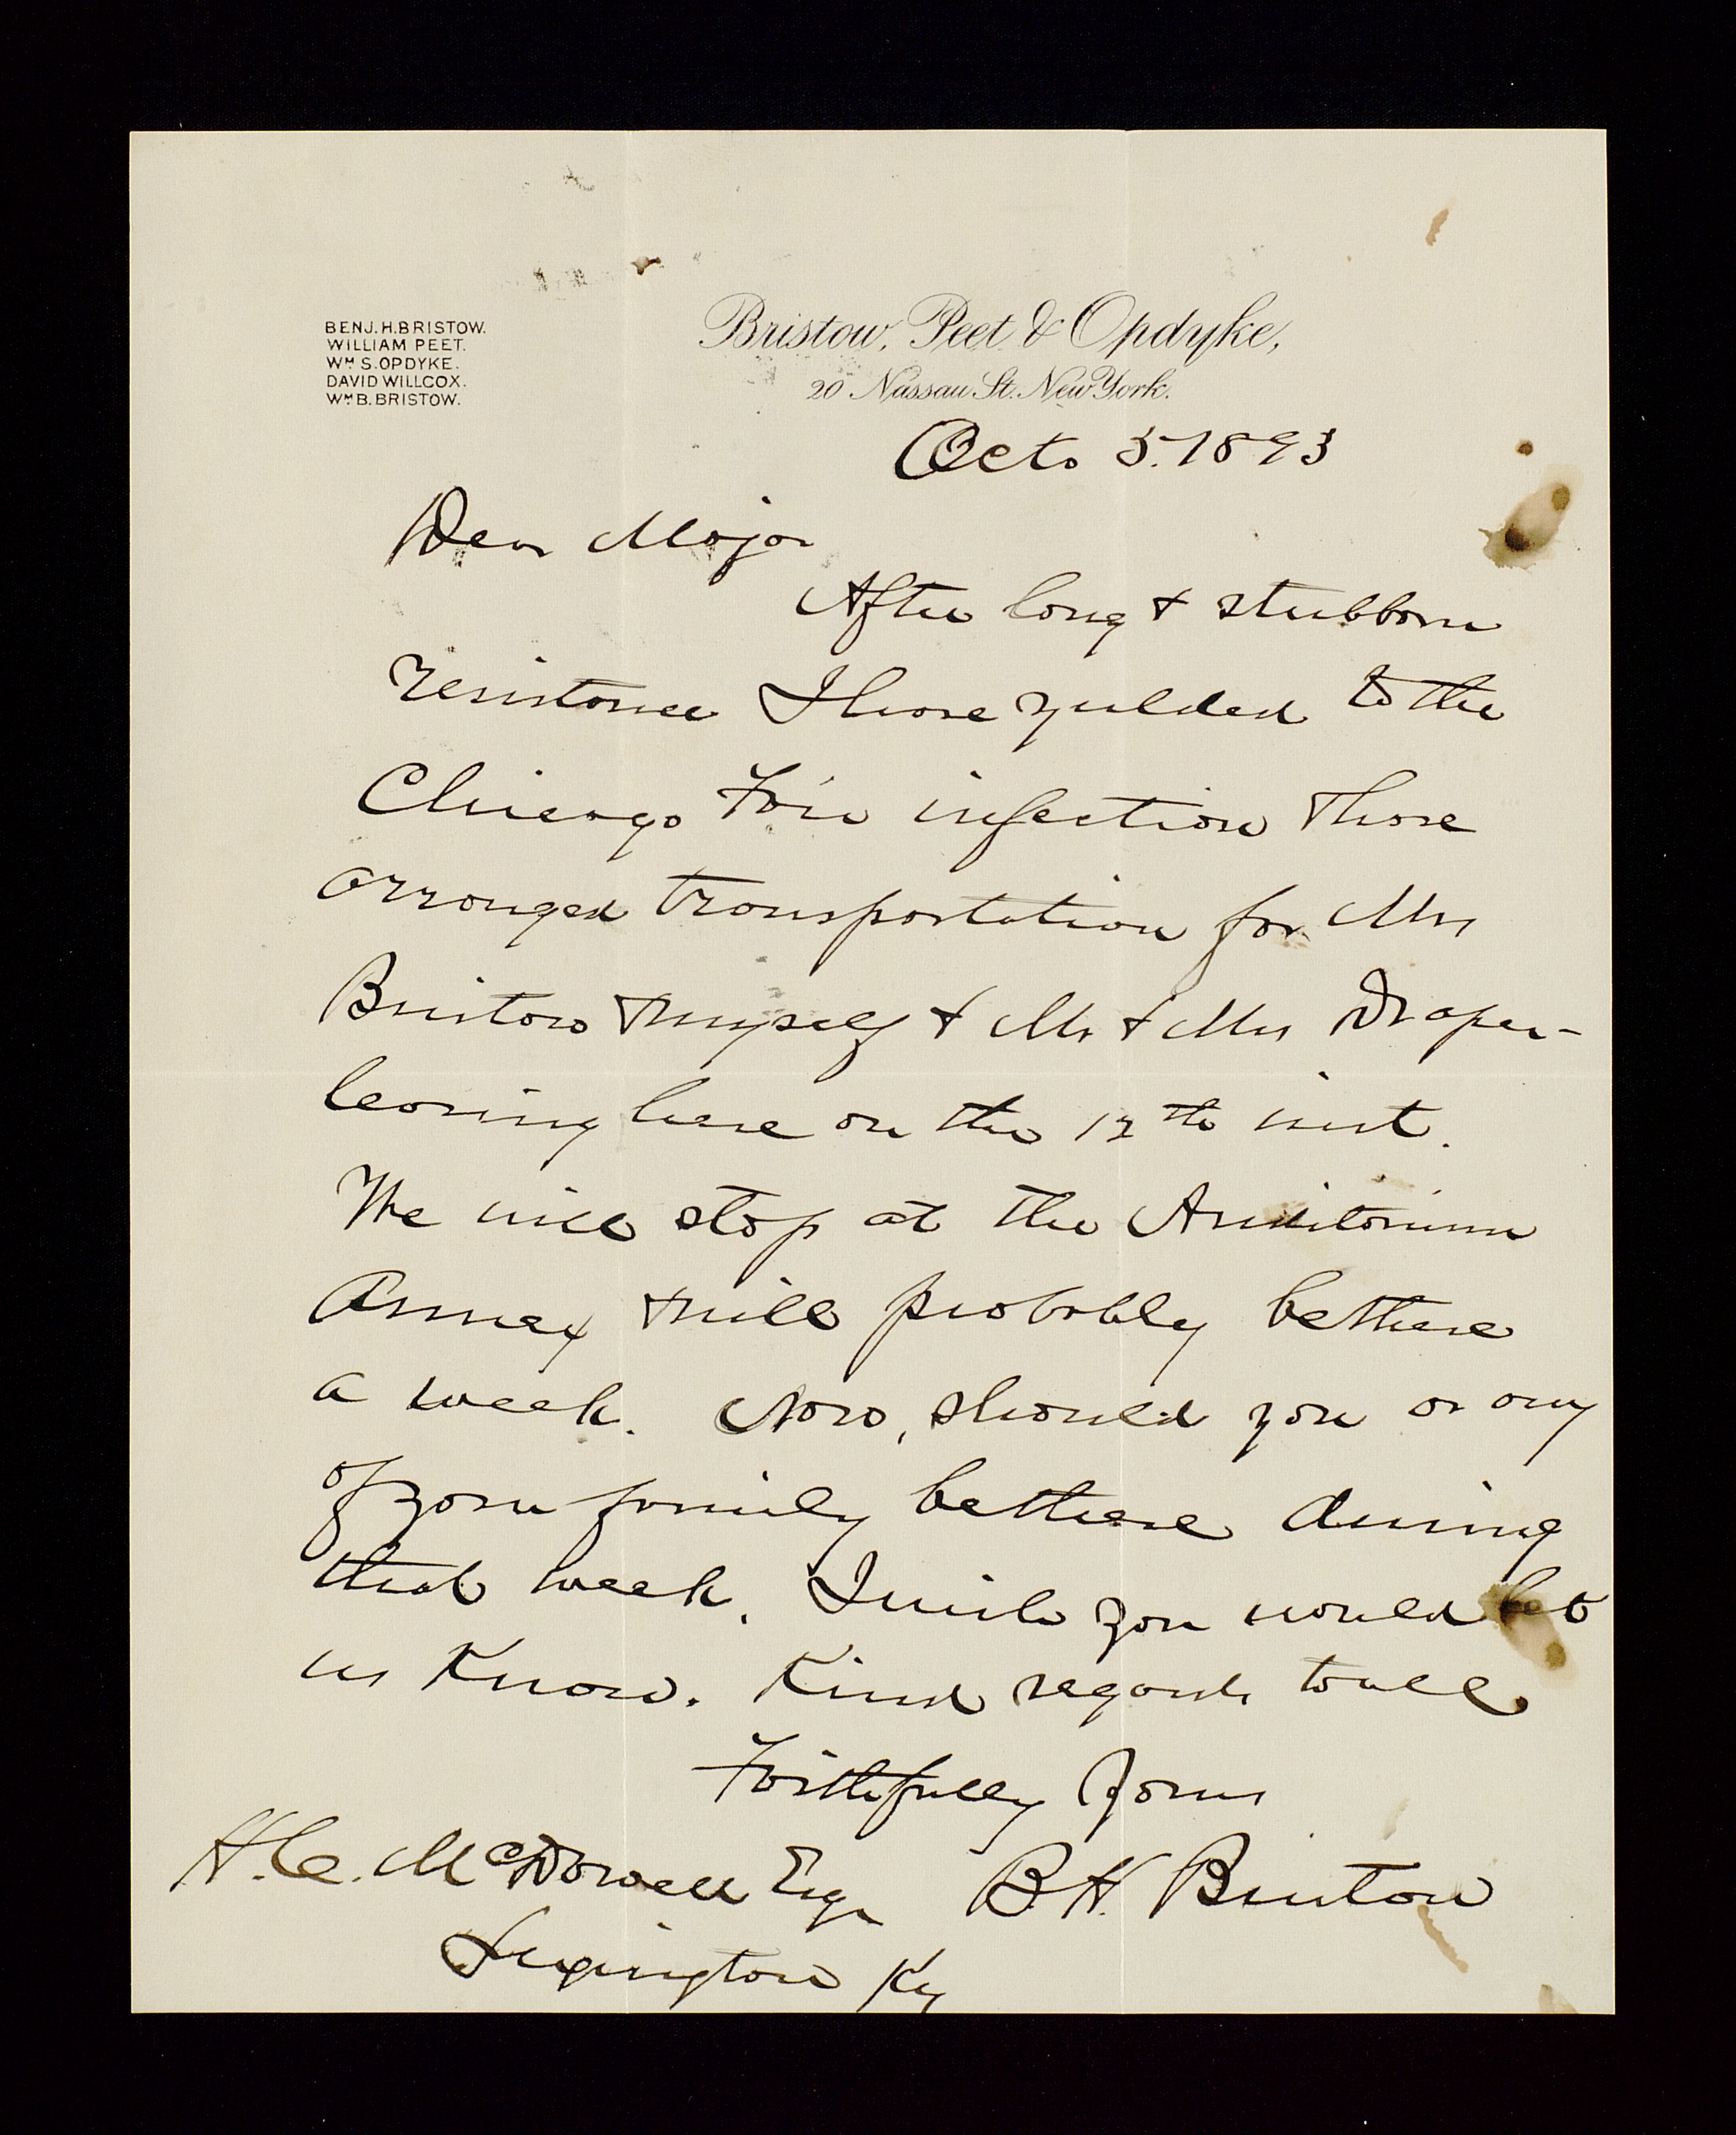 BENJ. H. BRISTOW.
WILLIAM PEET.
WM S. OPDYKE.
DAVID WILLCOX.
WM B. BRISTOW.
Bristow, Peet & Opdyke,
20 Nassau St. New York.
Octo 5. 1893
Dear Major
After long & stubborn
resistance I have yielded to the
Chicago Fair infection & have
arranged transportation for Mrs
Bristow & myself & Mr & Mrs Draper -
leaving here on the 12th inst.
We will stop at the Auditorium
Annex & will probably be there
a week. Now, should you or any
of your family be there during
that week, I wish you would let
us know. Kind regards to all
Faithfully Yours
B. H. Bristow
H. C. McDowell Esqr
Lexington Ky